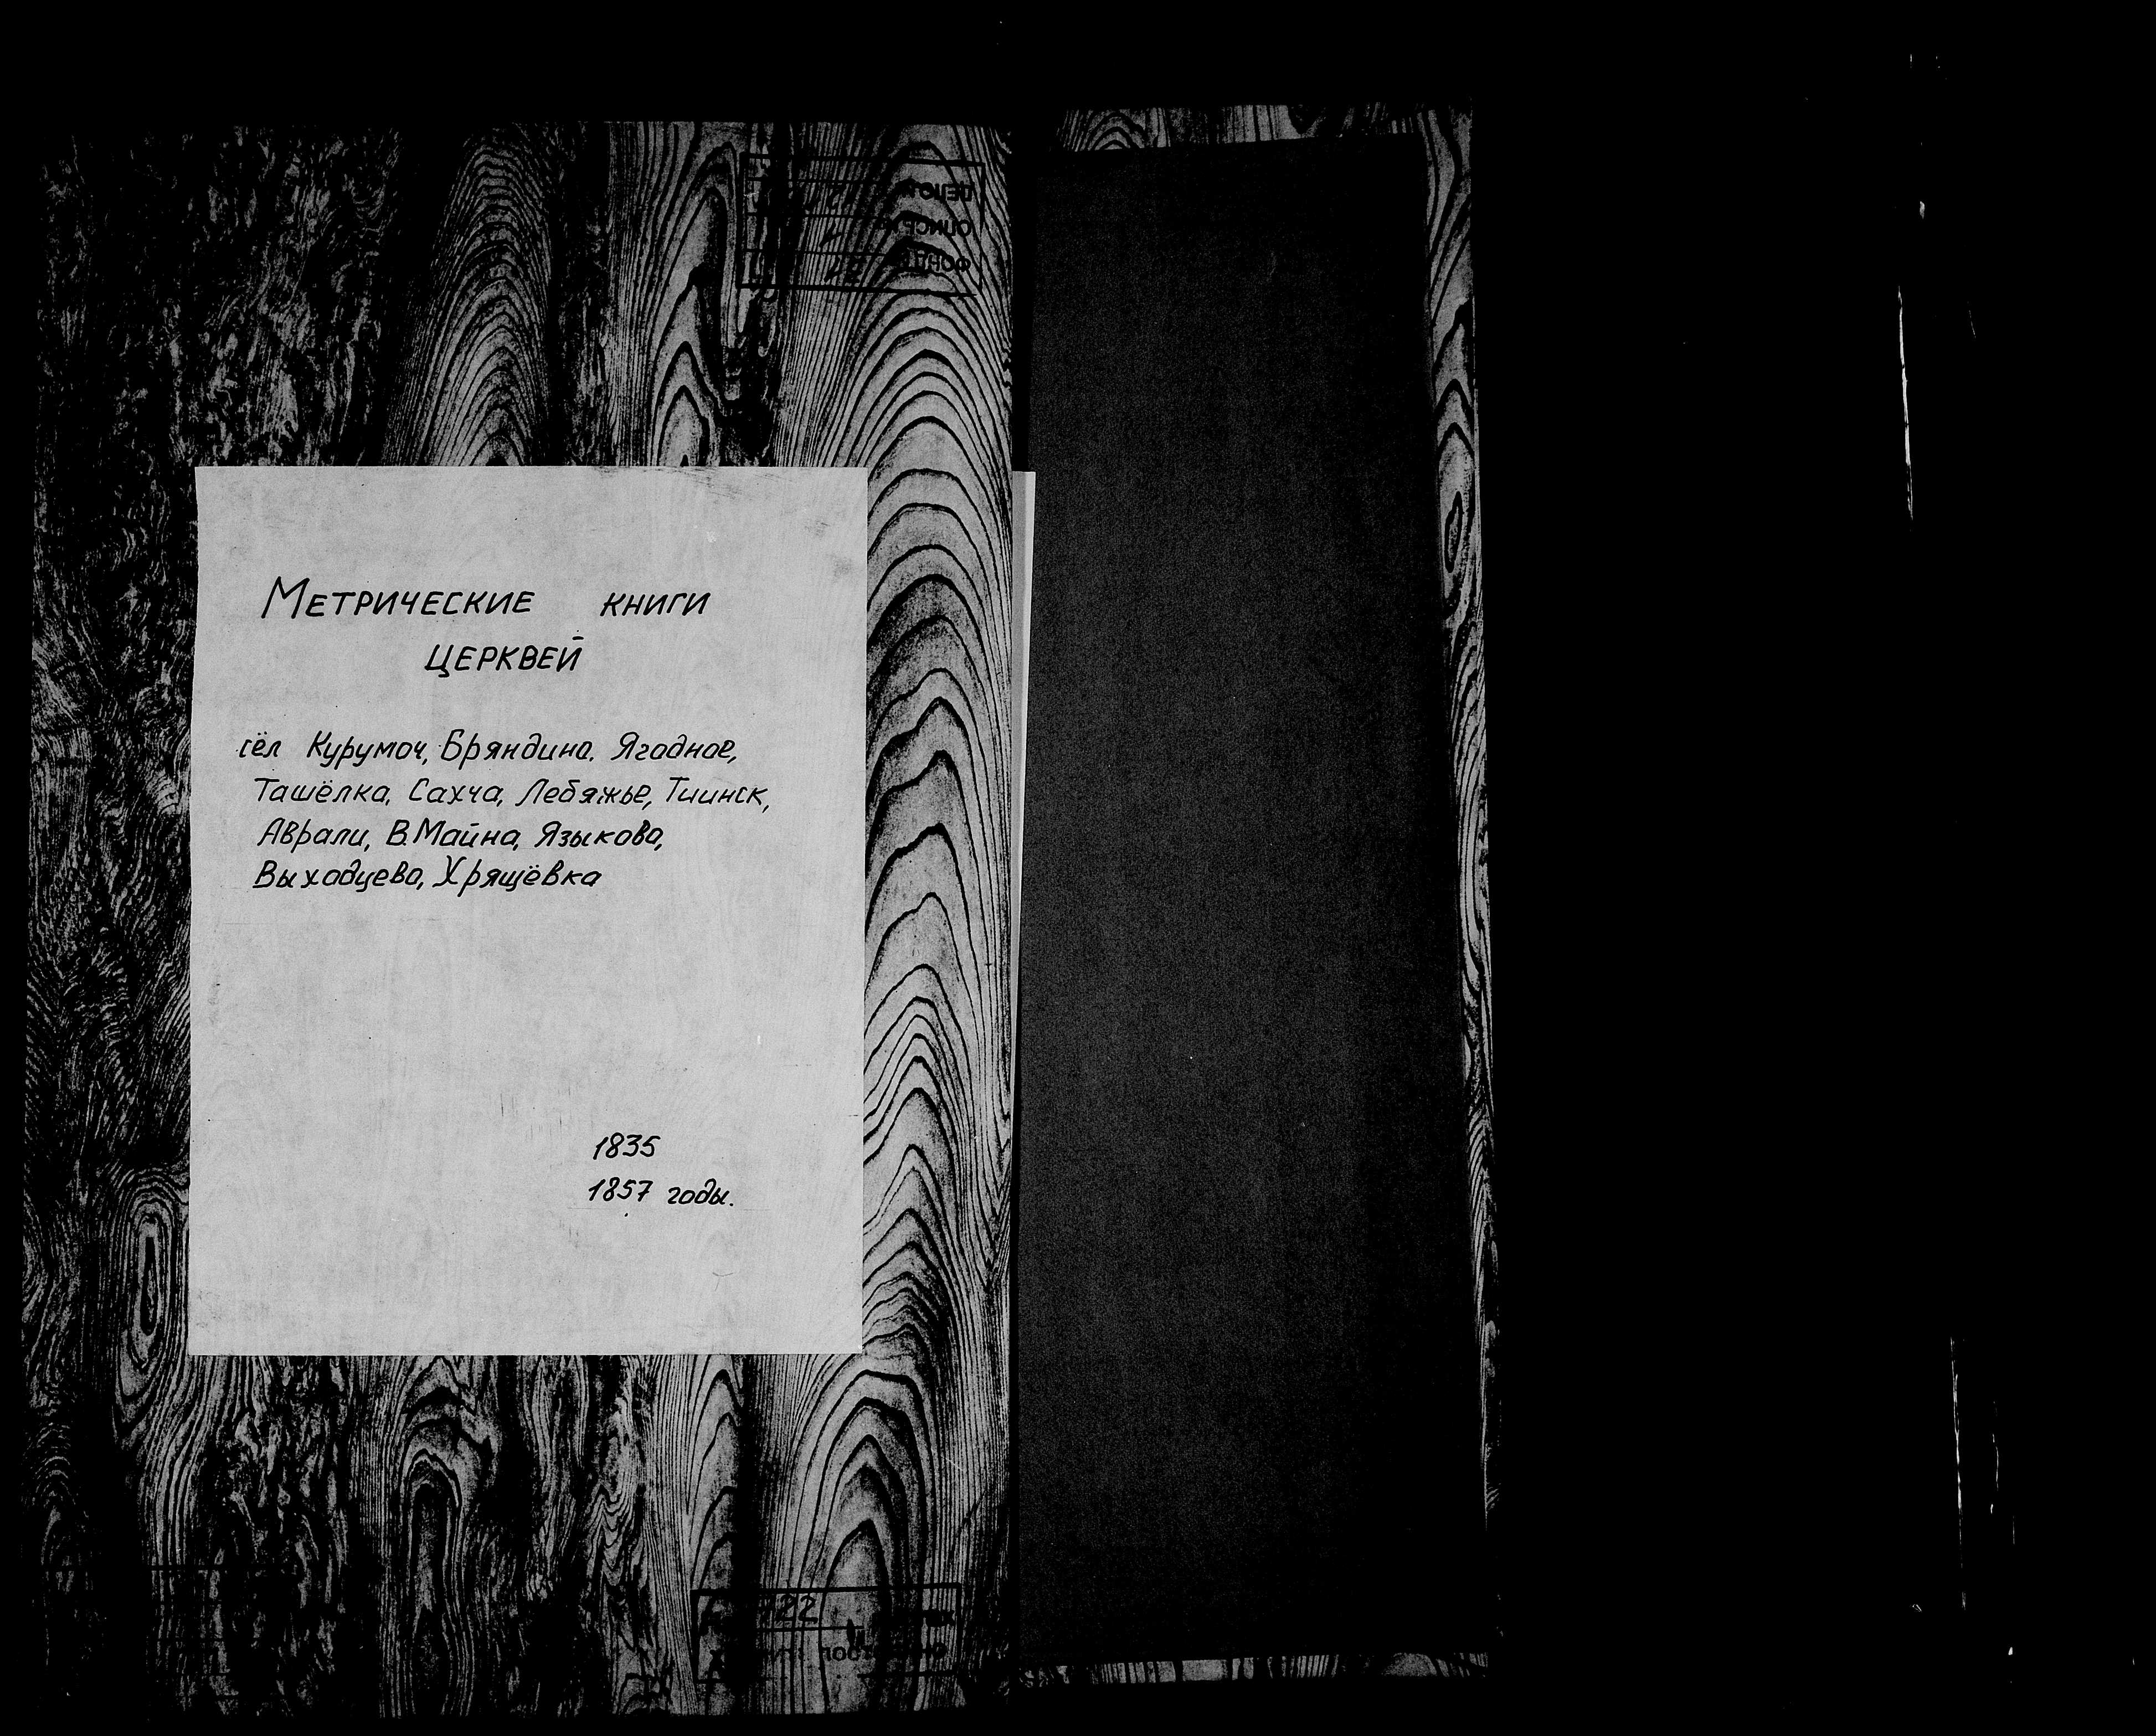 МЕТРИЧЕСКИЕ КНИГИ
ЦЕРКВЕЙ
сёл Курумоч, Бряндино, Ягодное,
Ташёлка, Сахча, Лебяжье, Тиинск,
Аврали, В.Майна, Языково,
Выходцево, Хрящёвка
1835
1857 годы.